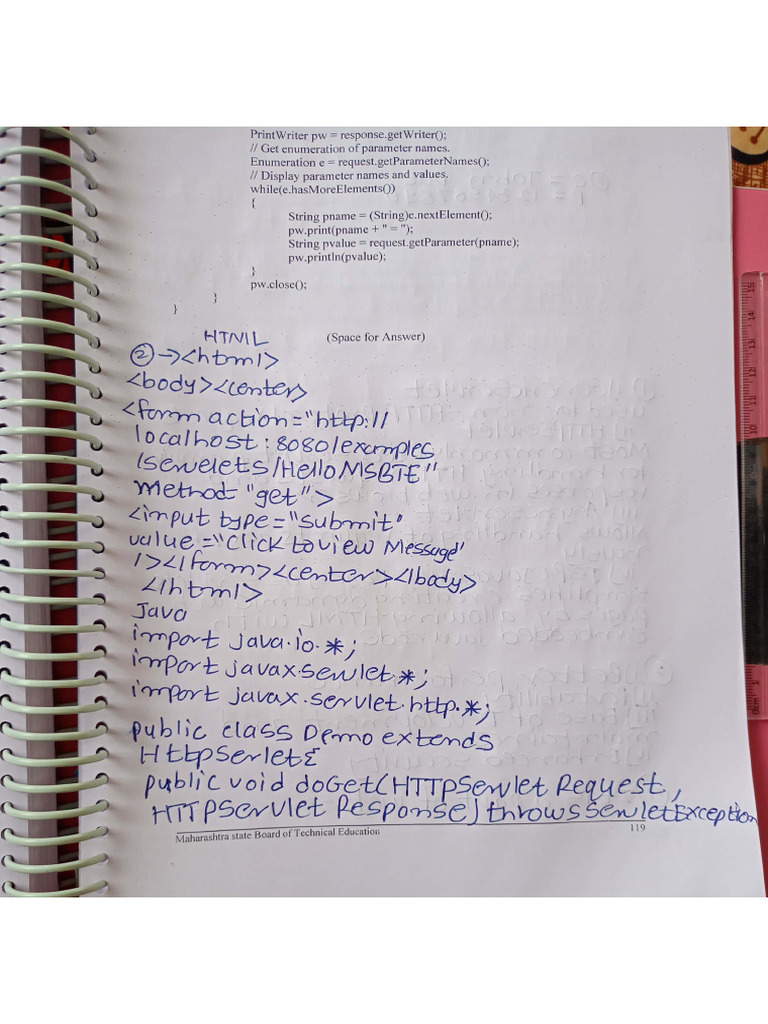 PrintWriter pw = response.getWriter();
// Get enumeration of parameter names.
Enumeration e = request.getParameterNames();
// Display parameter names and values.
while(e.hasMoreElements())
{
String pname = (String)e.nextElement();
pw.print(pname + " = ");
String pvalue = request.getParameter(pname);
pw.println(pvalue);
}
pw.close();
}
}
HTML (Space for Answer)
② → <html>
<body><center>
<form action="http://
localhost:8080/examples
/servelets/HelloMSBTE"
method="get">
<input type="submit"
value="Click to view Message"
/></form><center></body>
</html>
Java
import java.io.*;
import javax.servlet.*;
import javax.servlet.http.*;
public class Demo extends
HttpSerlet{
public void doGet(HTTPServlet Request,
HTTPServlet Response) throws ServletException
Maharashtra state Board of Technical Education 119
15
14
13
12
11
10